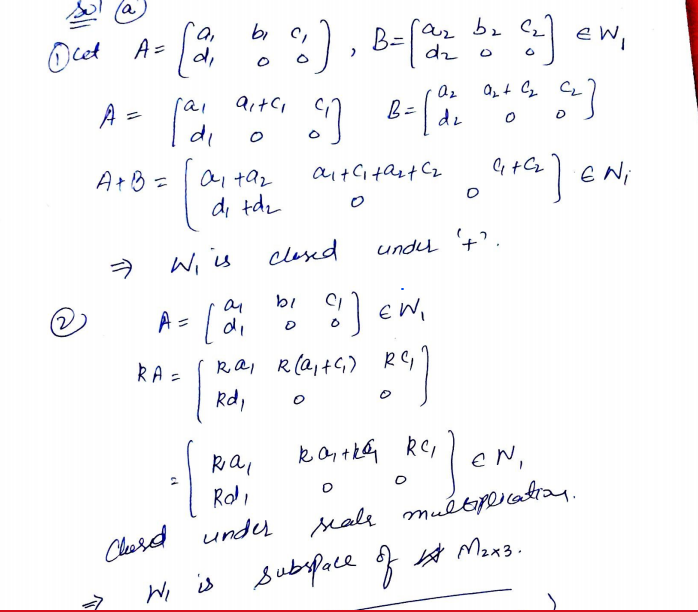 Sol (a)
① Let A = [a₁ b₁ c₁; d₁ 0 0], B = [a₂ b₂ c₂; d₂ 0 0] ∈ W₁
A = [a₁ a₁+c₁ c₁; d₁ 0 0] B = [a₂ a₂+c₂ c₂; d₂ 0 0]
A+B = [a₁+a₂ a₁+c₁+a₂+c₂ c₁+c₂; d₁+d₂ 0 0] ∈ W₁
⇒ W₁ is closed under '+'.
② A = [a₁ b₁ c₁; d₁ 0 0] ∈ W₁
RA = [Ra₁ R(a₁+c₁) Rc₁; Rd₁ 0 0]
= [Ra₁ Ra₁+Rc₁ Rc₁; Rd₁ 0 0] ∈ W₁
Closed under scale multiplication.
⇒ W₁ is subspace of M₂ₓ₃.